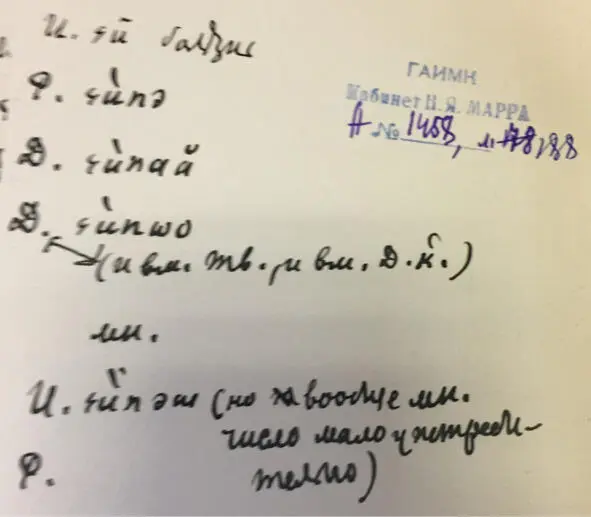 И. ҹӥ
Р. ҹӥпэ
Д. ҹӥпай
Д. ҹӥпшо
(и вм. тв., и вм. Д.к.)
мн.
И. ҹӥпэш (но вообще мн.
число мало употреби-
тельно)
Р.
ГАИМК
Кабинет Н.Я. МАРРА
А № 1458, л. 88